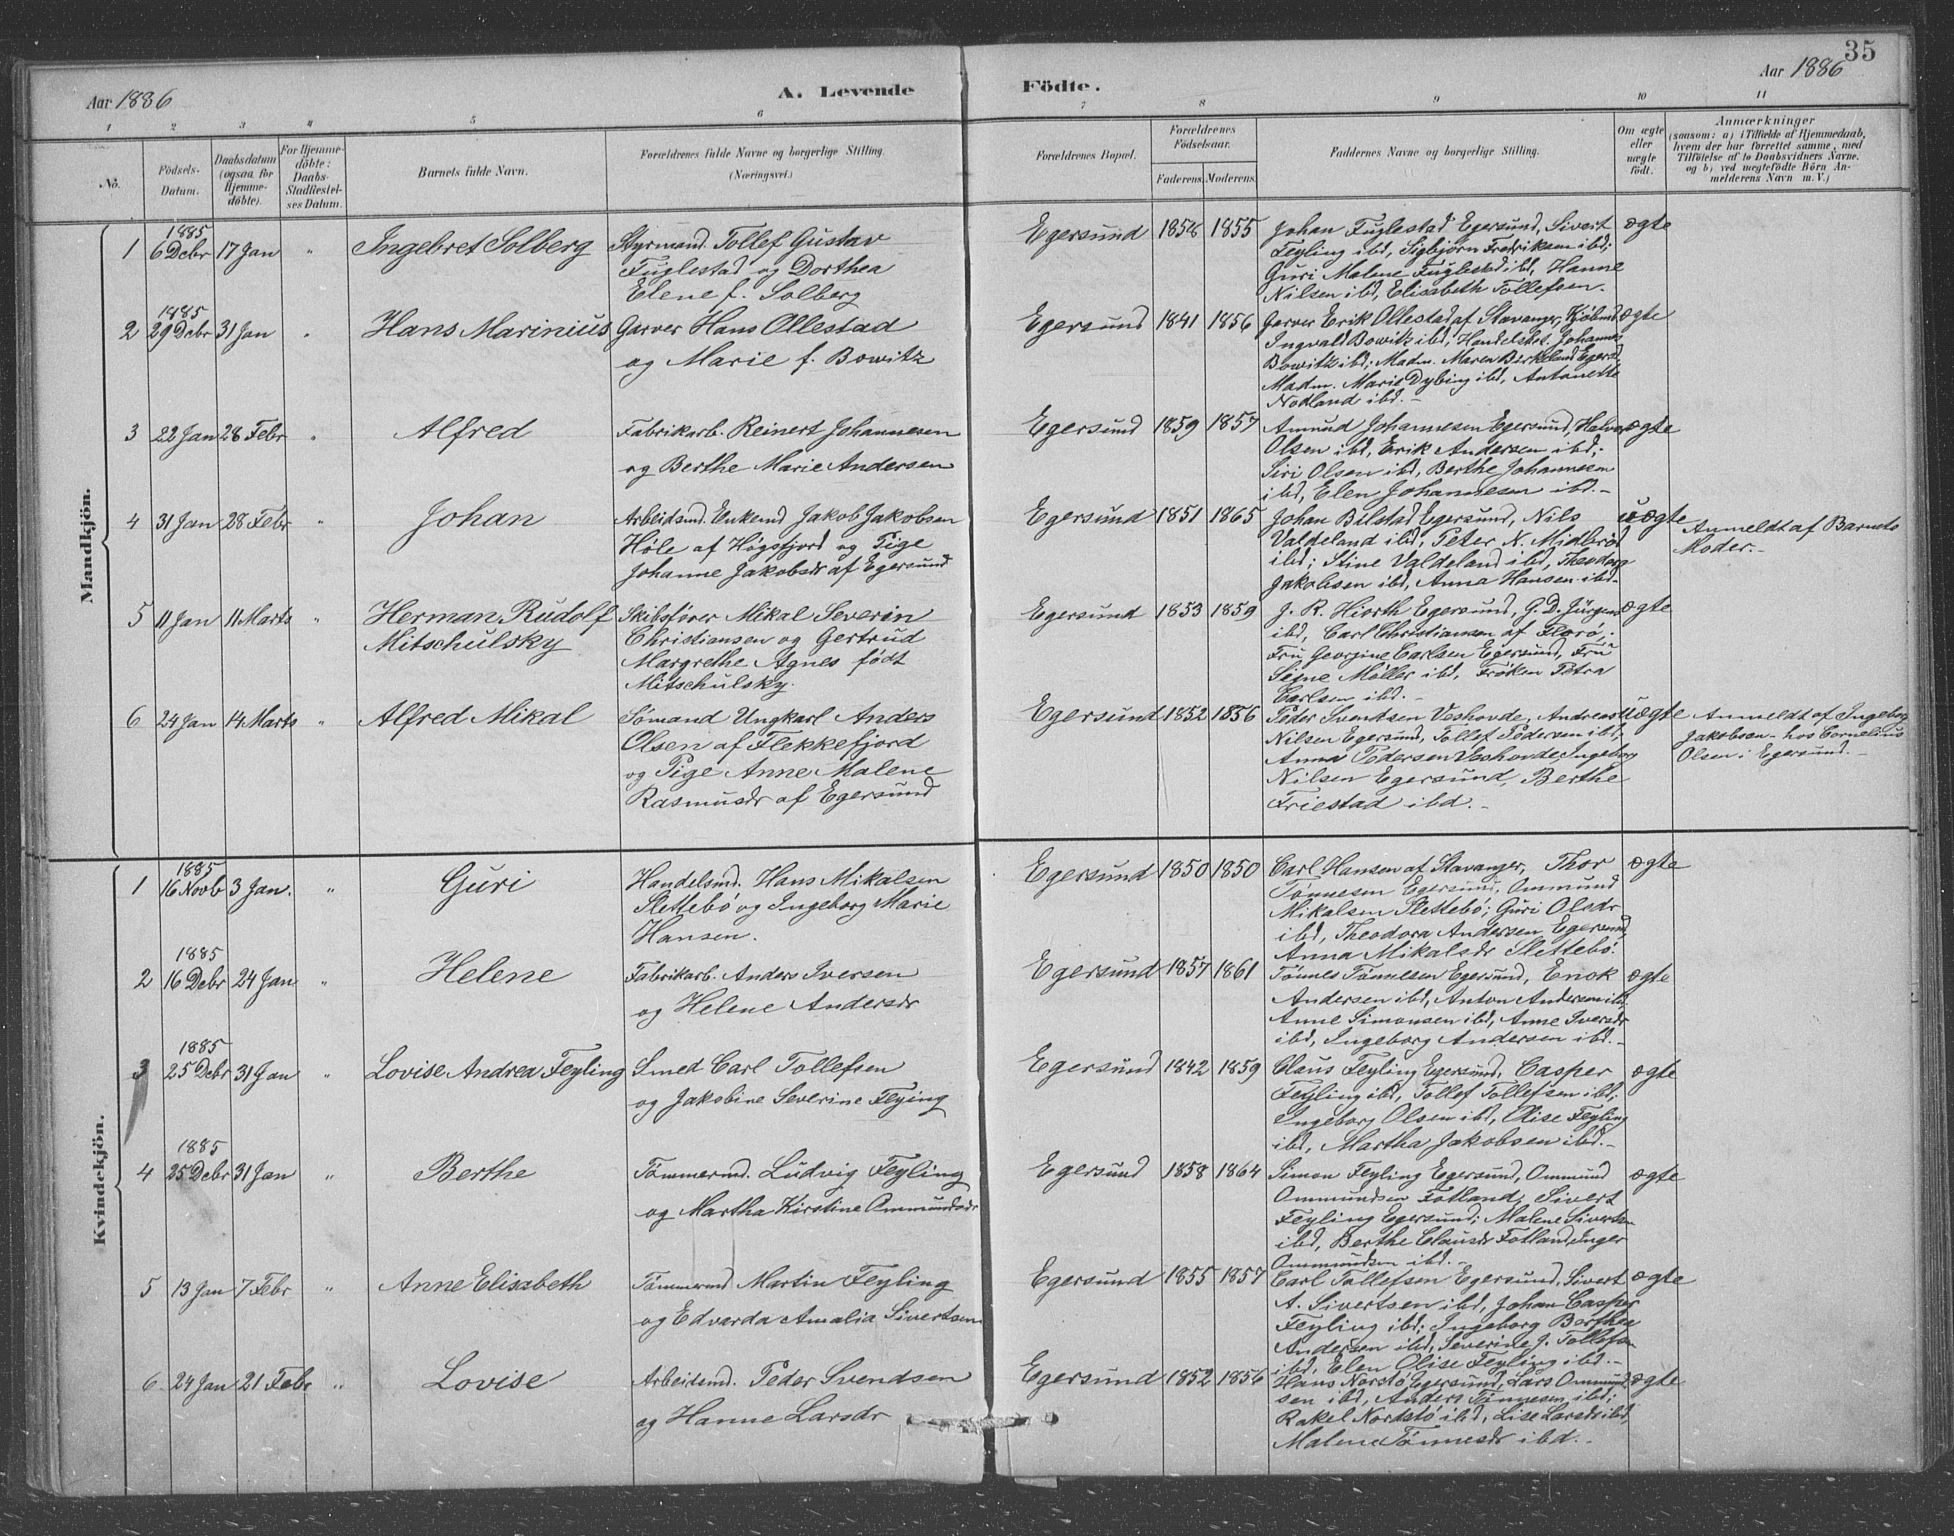 35
Aar 1886
A. Levende Födte.
Aar 1886
1 2 3 4 5 6 7 8 9 10 11
No.
Födsels-Datum.
Daabsdatum (ogsaa for Hjemme-döbte).
For Hjemme-döbte: Daabs-Stadfæstel-ses Datum.
Barnets fulde Navn.
Forældrenes fulde Navne og borgerlige Stilling.
(Næringsvei.)
Forældrenes Bopæl.
Forældrenes Födselsaar.
Faderens. Moderens.
Faddernes Navne og borgerlige Stilling.
Om ægte eller uægte födt.
Anmærkninger
(saasom: a) i Tilfælde af Hjemmedaab,
hvem der har forrettet samme, med
Tilföielse af to Daabsvidners Navne,
og b) ved uægtefödte Börn An-
melderens Navn m. V.)
Mandkjön.
1 1885 6 Debr 17 Jan " Ingebret Solberg
Styrmand Tollef Gustav
Fuglestad og Dorthea
Elene f. Solberg
Egersund 1856 1855
Johan Fuglestad Egersund, Sivert
Feyling ibd, Sigbjørn Fredriksen ibd;
Guri Malene Fuglestad ibd, Hanne
Nilsen ibd, Elisabeth Tollefsen.
ægte
2 1885 29 Debr 31 Jan " Hans Marinius
Garver Hans Ollestad
og Marie f. Bowitz
Egersund 1841 1856
Garver Erik Ollestad af Stavanger, Kjøbmd
Ingvald Bowitz ibd, Handelsbet. Johannes
Bowitz ibd; Madm. Maren Birkeland Egersd,
Madm. Marie Dybing ibd, Antonette
Nodland ibd.-
ægte
3 22 Jan 28 Febr " Alfred
Fabrikarb. Reinert Johannesen
og Berthe Marie Andersen
Egersund 1859 1857
Amund Johannesen Egersund, Halvor
Olsen ibd, Erik Andersen ibd;
Siri Olsen ibd, Berthe Johannesen
ibd, Elen Johannesen ibd.-
ægte
4 31 Jan 28 Febr " Johan
Arbeidsmd. Enkemd Jakob Jakobsen
Høle af Høgsfjord og Pige
Johanne Jakobsdr af Egersund
Egersund 1851 1865
Johan Bilstad Egersund, Nils
Valdeland ibd, Peter N. Midbrød
ibd; Stine Valdeland ibd, Theodora
Jakobsen ibd, Anna Hansen ibd.
uægte
Anmeldt af Barnets
Moder.-
5 11 Jan 11 Marts " Herman Rudolf
Mitschulsky
Skibsfører Mikal Severin
Christiansen og Gertrud
Margrethe Agnes født
Mitschulsky.
Egersund 1853 1859
J. R. Hiorth Egersund, G. D. Jürgens
ibd, Carl Christiansen af Florø;
Fru Georgine Carlsen Egersund, Fru
Signe Møller ibd, Frøken Petra
Carlsen ibd.-
ægte
6 24 Jan 14 Marts " Alfred Mikal
Sømand Ungkarl Anders
Olsen af Flekkefjord
og Pige Anne Malene
Rasmusdr af Egersund
Egersund 1852 1856
Peder Svendsen Veshovde, Andreas
Nilsen Egersund, Tollef Pedersen ibd,
Anna Pedersen Veshovde, Ingeborg
Nilsen Egersund, Berthe
Friestad ibd.-
uægte
Anmeldt af Ingeborg
Jakobsen- hos Cornelius
Olsen i Egersund.-
Kvindekjön.
1 1885 16 Novb 3 Jan. " Guri
Handelsmd. Hans Mikalsen
Slettebø og Ingeborg Marie
Hansen.
Egersund 1850 1850
Carl Hansen af Stavanger, Thor
Tønnesen Egersund, Ommund
Mikalsen Slettebø; Guri Olsdr
ibd, Theodora Andersen Egersund,
Anna Mikalsdr Slettebø.
ægte
2 1885 16 Debr 24 Jan " Helene
Fabrikarb. Anders Iversen
og Helene Andersdr
Egersund 1857 1861
Tønnes Tønnesen Egersund, Enok
Andersen ibd, Anton Andersen ibd;
Anne Simonsen ibd, Anne Iversdr
ibd, Ingeborg Andersen ibd.-
ægte
3 1885 25 Debr 31 Jan " Lovise Andrea Feyling
Smed Carl Tollefsen
og Jakobine Severine Feying
Egersund 1842 1859
Claus Feyling Egersund, Casper
Feyling ibd, Tollef Tollefsen ibd;
Ingeborg Olsen ibd, Olise Feyling
ibd, Martha Jakobsen ibd.-
ægte
4 1885 25 Debr 31 Jan " Berthe
Tømmermd. Ludvig Feyling
og Martha Kirstine Ommundsdr
Egersund 1858 1864
Simon Feyling Egersund, Ommund
Ommundsen Fotland, Sivert
Feyling Egersund; Malene Sivertsen
ibd, Berthe Clausdr Fotland, Inger
Ommundsen ibd.-
ægte
5 13 Jan 7 Febr " Anne Elisabeth
Tømmermd Martin Feyling
og Edvarda Amalia Sivertsen
Egersund 1855 1857
Carl Tollefsen Egersund, Sivert
A. Sivertsen ibd, Johan Casper
Feyling ibd; Ingeborg Berthea
Andersen ibd, Severine J. Tollefsen
ibd, Elen Olise Feyling ibd.-
ægte
6 24 Jan 21 Febr " Lovise
Arbeidsmd. Peder Svendsen
og Hanne Larsdr
Egersund 1852 1856
Hans Norstø Egersund, Lars Ommund-
sen ibd, Anders Tønnesen ibd;
Rakel Nordstø ibd, Lise Larsdr ibd,
Malene Tønnesdr ibd.-
ægte